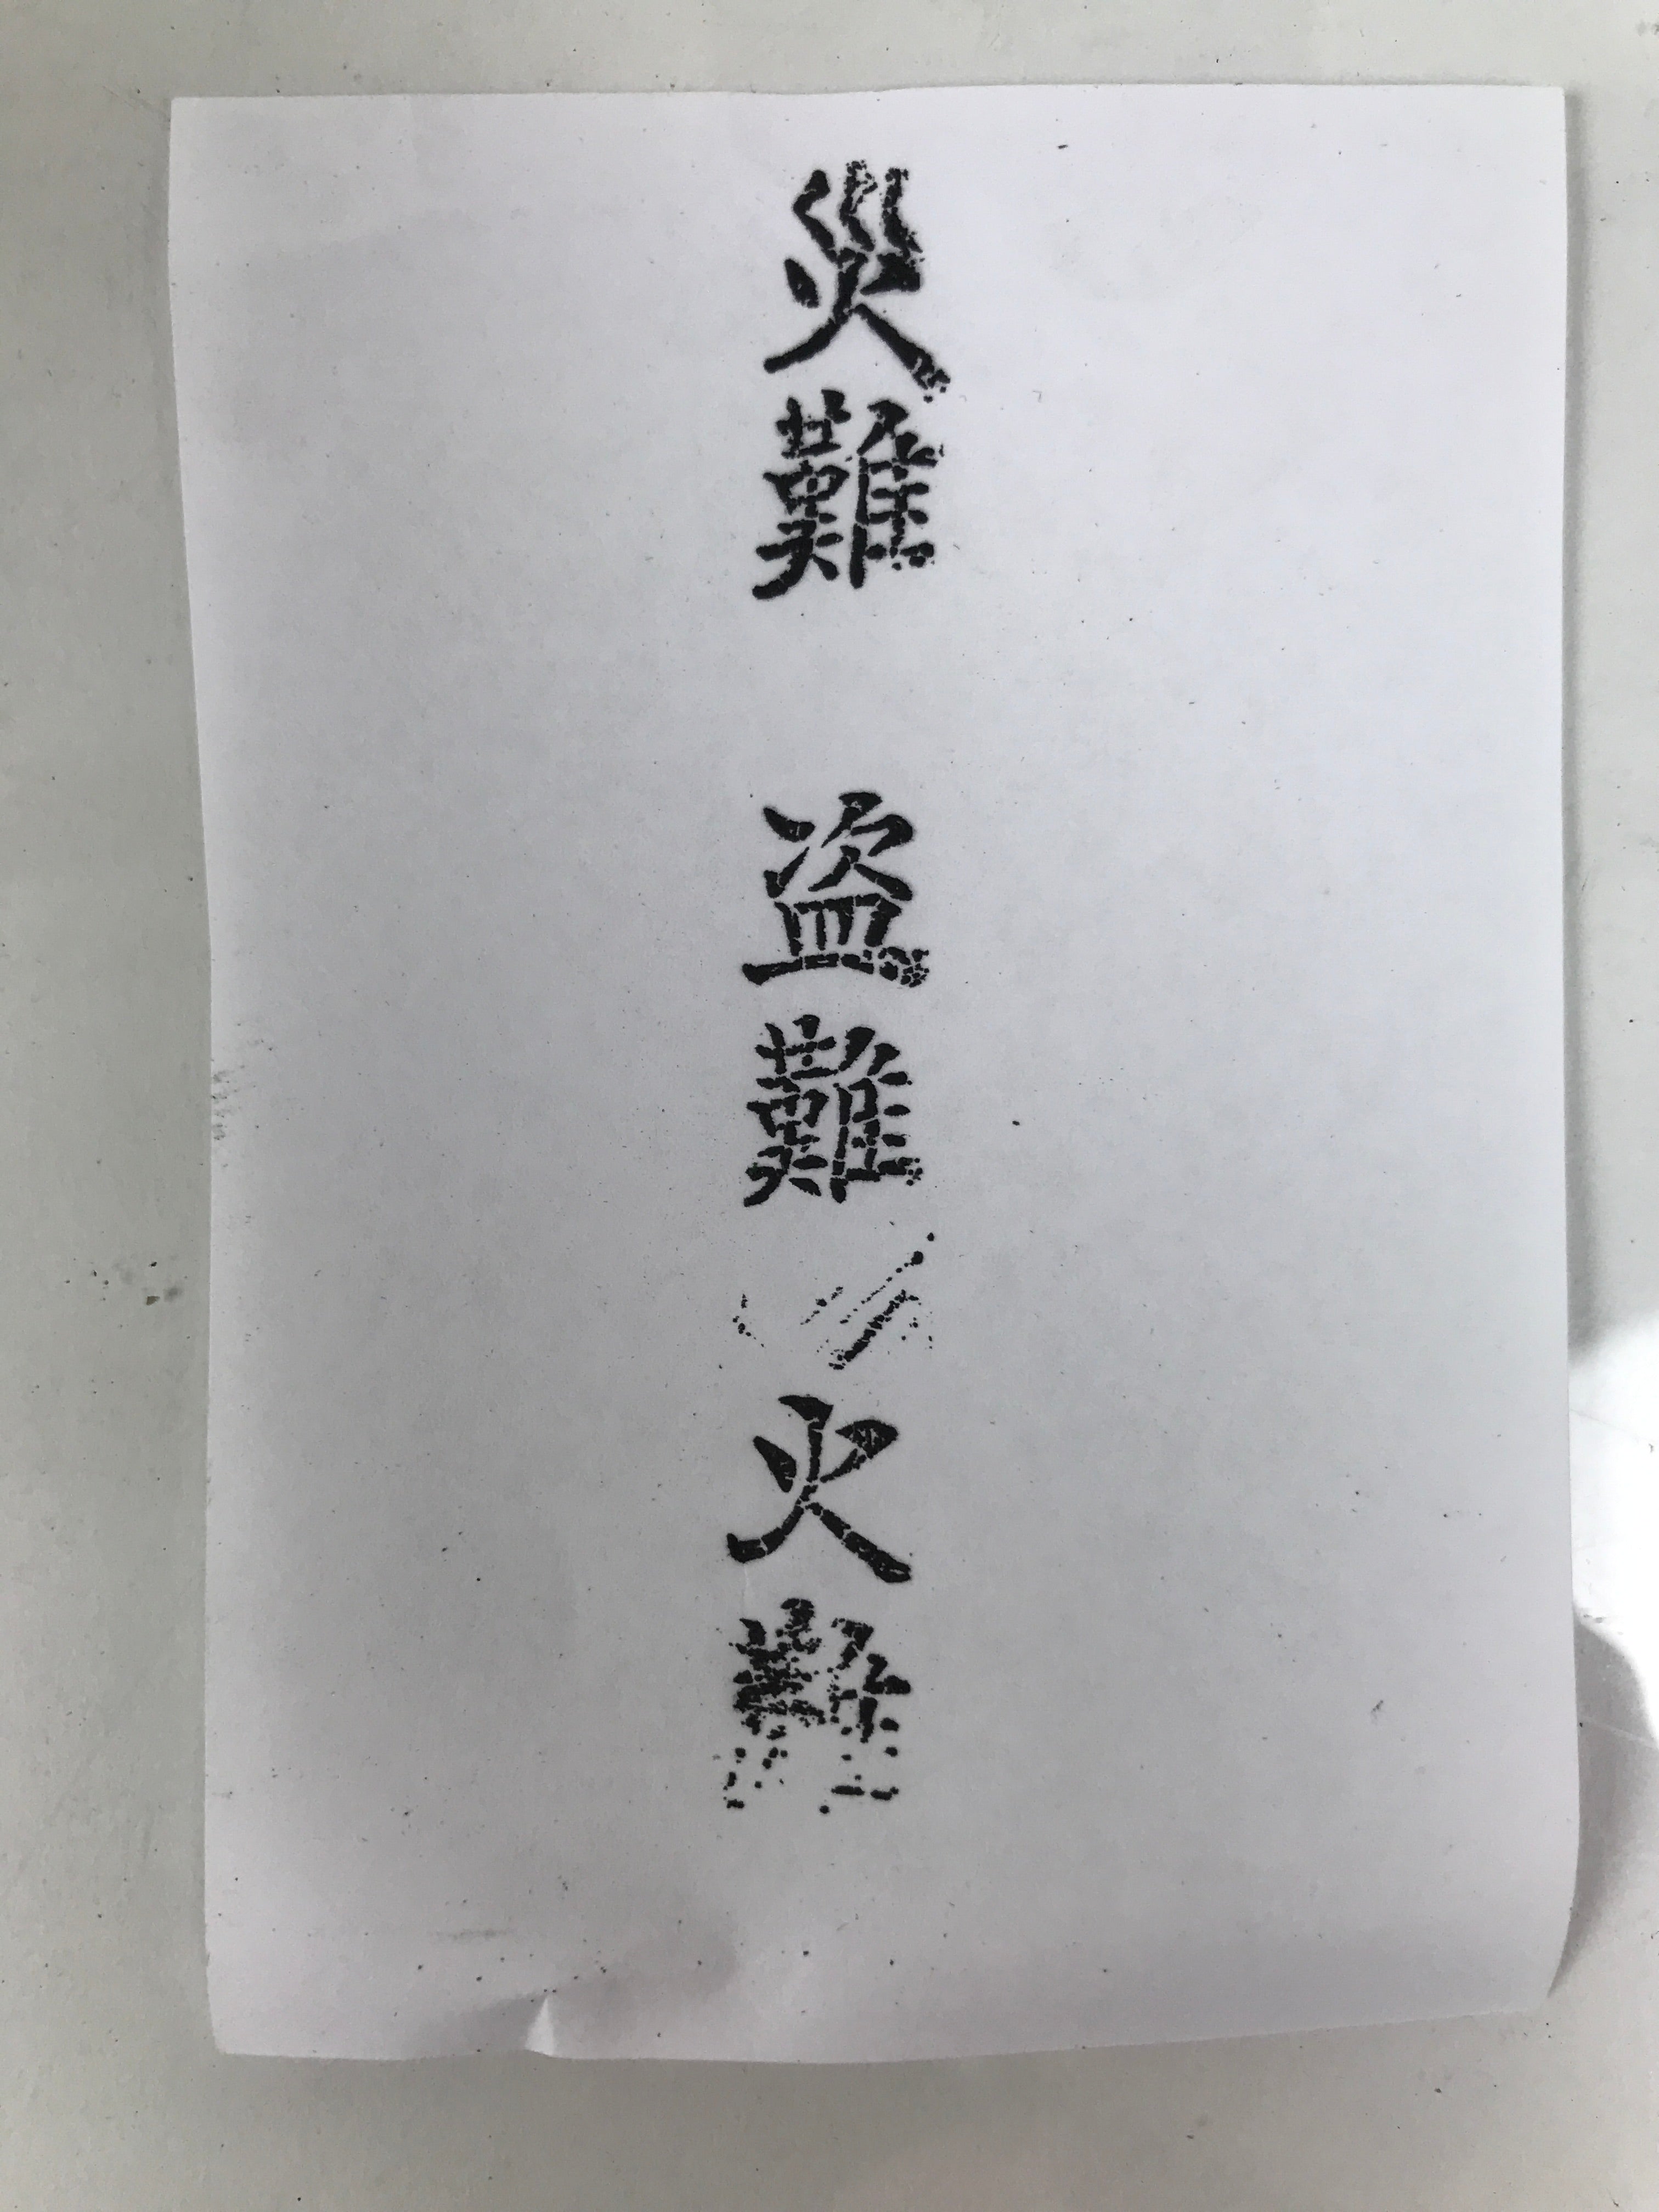 災難　盗難　火難